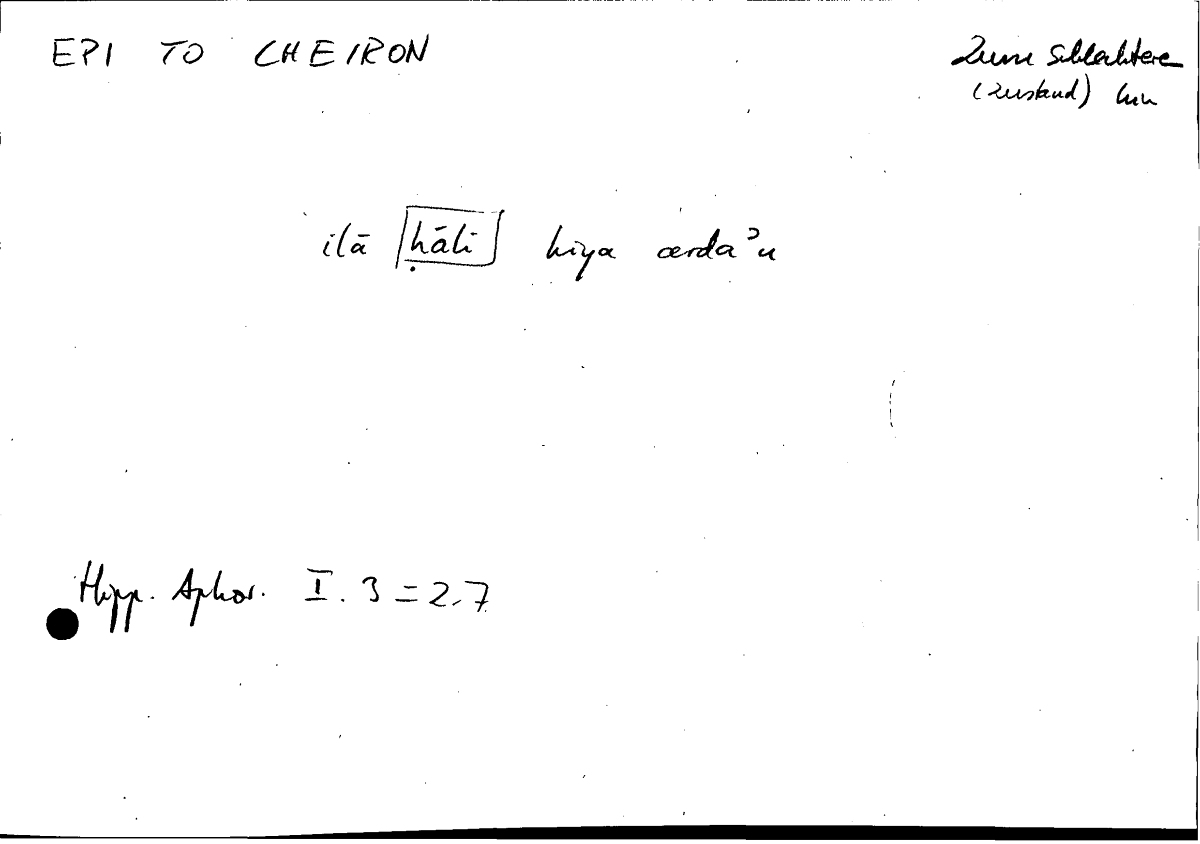 EPI TO CHEIRON
Zum Schlechtere
(Zustand) hin
ilā ḥāli hiya arda'u
Hipp. Aphor. I. 3 = 2.7